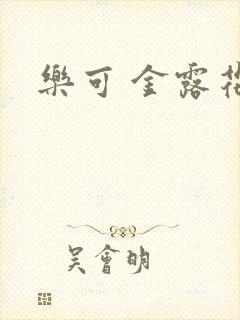 樂可 金露花
吳會明